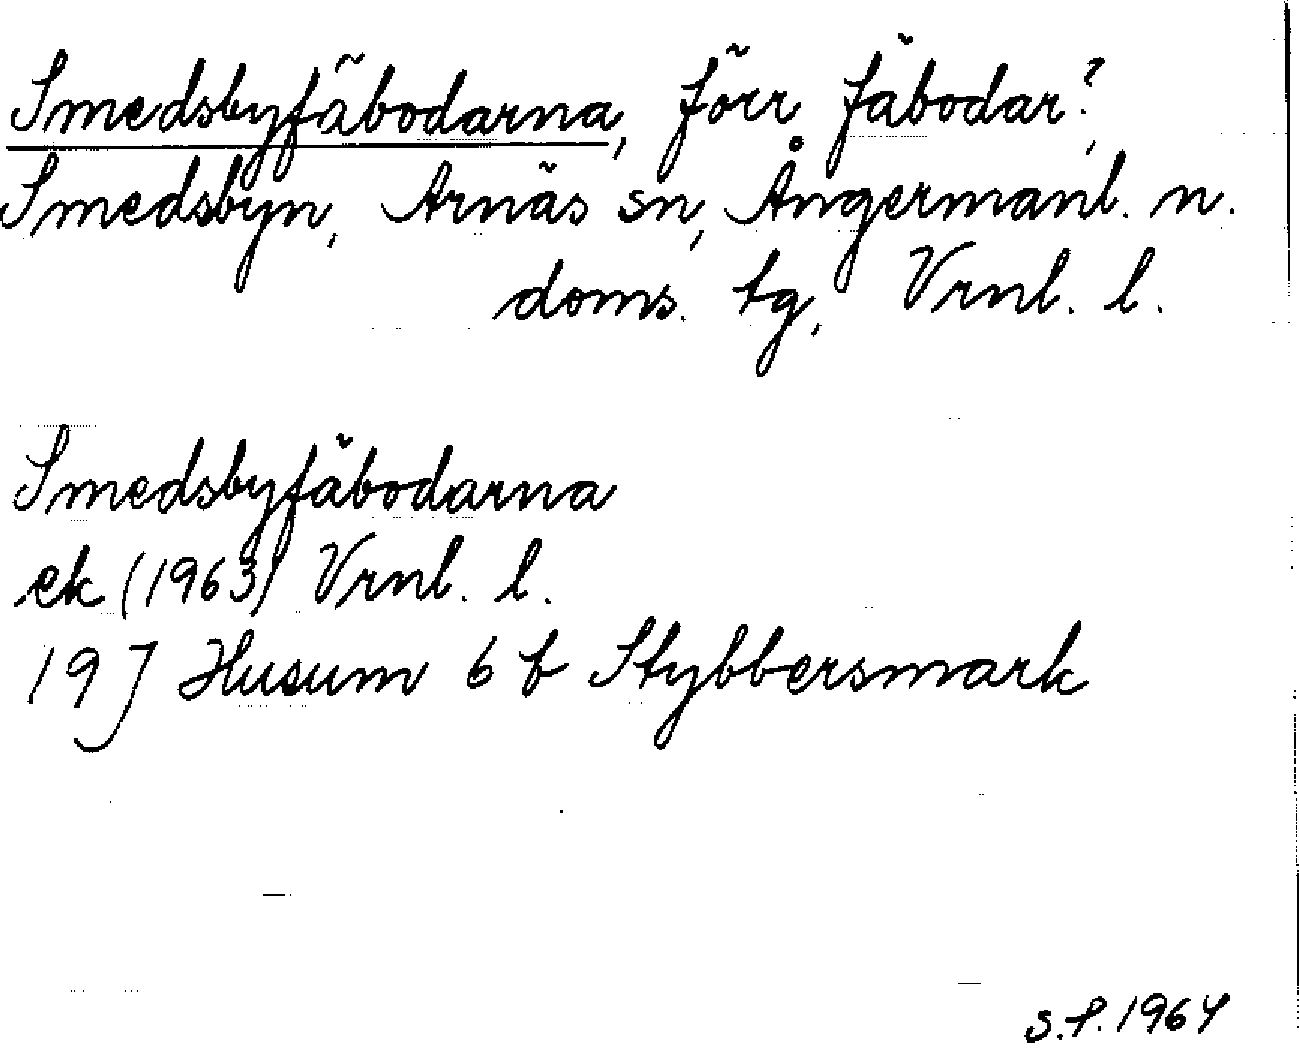 Smedsbyfäbodarna, förr fäbodar?,
Smedsbyn, Arnäs sn, Ångermanl. n.
doms. tg, Vrnl. l.
Smedsbyfäbodarna
ek (1963) Vrnl. l.
19 J Husum 6 b Stybbersmark
S.P. 1964